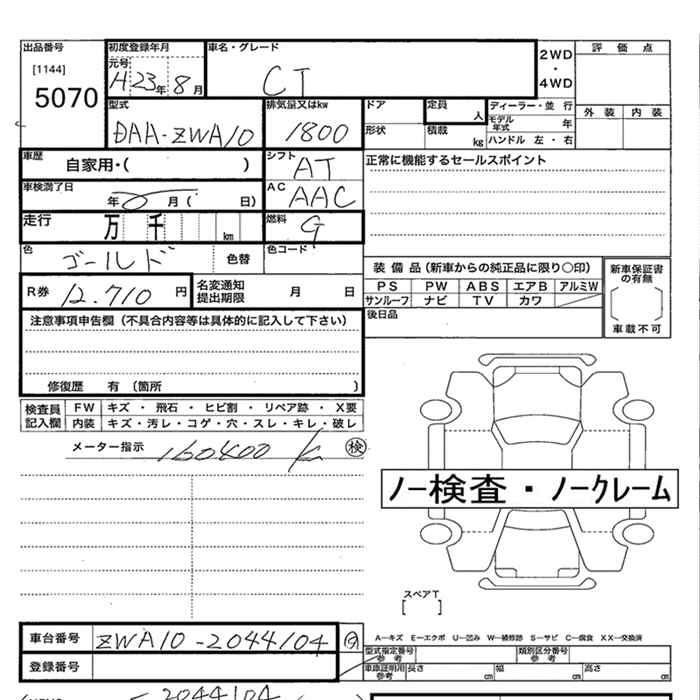 出品番号
[1144]
5070
初度登録年月
元号
H 23年 8月
車名・グレード
CT
2WD
・
4WD
評価点
外装 内装
型式
DAA-ZWA10
排気量又はkw
1800
ドア
形状
定員
人
積載
kg
ディーラー・並 行
モデル年式 年
ハンドル 左・右
車歴
自家用・( )
シフト
AT
正常に機能するセールスポイント
車検満了日
年 月 ( 日)
AC
AAC
走行
万 千 km
燃料
G
色
ゴールド
色替
色コード
R券 12.710 円
名変通知
提出期限
月 日
装備品(新車からの純正品に限り○印)
PS PW ABS エアB アルミW
サンルーフ ナビ TV カワ
新車保証書
の有無
車載不可
後日品
注意事項申告欄(不具合内容等は具体的に記入して下さい)
修復歴 有 (箇所 )
検査員
記入欄
FW キズ ・ 飛石 ・ ヒビ割 ・ リペア跡 ・ X要
内装 キズ・汚レ・コゲ・穴・スレ・キレ・破レ
メーター指示
160400 k
検
ノー検査・ノークレーム
スペアT
[ ]
車台番号
ZWA10-2044104
登録番号
A—キズ E—エクボ U—凹み W—補修跡 S—サビ C—腐食 XX—交換済
型式指定番号
参考
類別区分番号
参考
車庫証明用
参考
長さ cm 幅 cm 高さ cm
-2044104